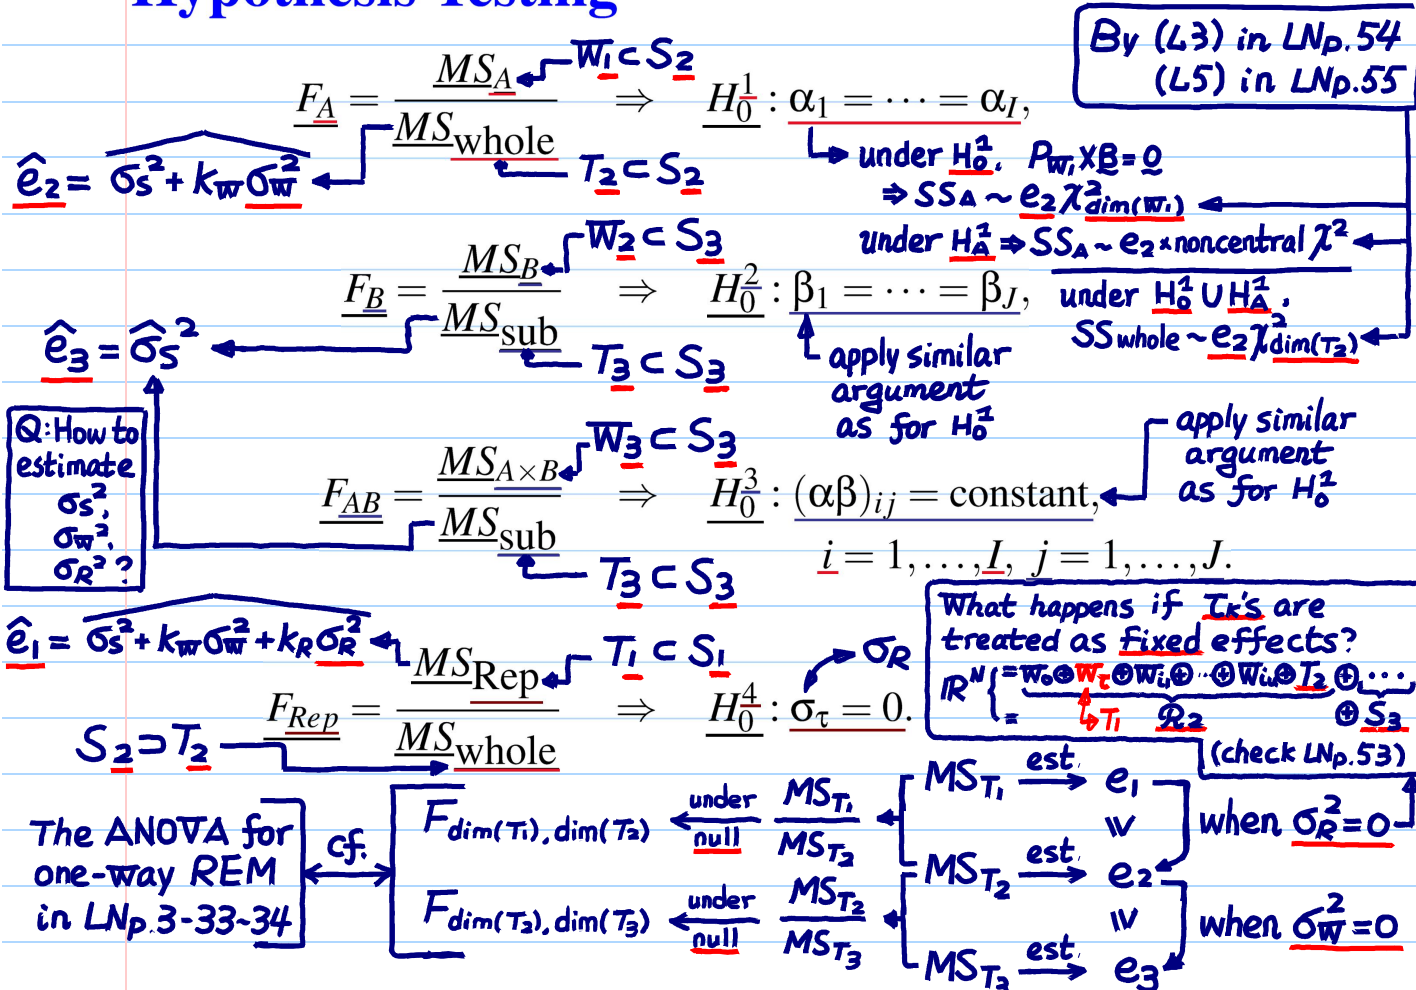 Hypothesis Testing
By (L3) in LNp.54
(L5) in LNp.55
F_A = MS_A / MS_whole ⇒ H_0^1 : α_1 = ⋯ = α_I,
W_1 ⊂ S_2
T_2 ⊂ S_2
ê_2 = σ_S^2 + k_W σ_W^2
under H_0^1, P_{W_1} Xβ = 0
⇒ SS_A ~ e_2 χ^2_{dim(W_1)}
under H_A^1 ⇒ SS_A ~ e_2 × noncentral χ^2
under H_0^1 ∪ H_A^1,
SS_whole ~ e_2 χ^2_{dim(T_2)}
F_B = MS_B / MS_sub ⇒ H_0^2 : β_1 = ⋯ = β_J,
W_2 ⊂ S_3
T_3 ⊂ S_3
ê_3 = σ̂_S^2
apply similar
argument
as for H_0^1
Q: How to
estimate
σ_S^2,
σ_W^2,
σ_R^2 ?
F_AB = MS_{A×B} / MS_sub ⇒ H_0^3 : (αβ)_{ij} = constant,
i = 1,…,I, j = 1,…,J.
W_3 ⊂ S_3
T_3 ⊂ S_3
apply similar
argument
as for H_0^1
ê_1 = σ_S^2 + k_W σ_W^2 + k_R σ_R^2
F_Rep = MS_Rep / MS_whole ⇒ H_0^4 : σ_τ = 0.
T_1 ⊂ S_1
σ_R
S_2 ⊃ T_2
What happens if τ_K's are
treated as fixed effects?
R^N { = W_0 ⊕ W_τ ⊕ W_{i_1} ⊕ ⋯ ⊕ W_{i_u} ⊕ T_2 ⊕ ⋯
= R_2 ⊕ S_3
T_1
(check LNp.53)
The ANOVA for
one-way REM
in LNp.3-33~34
cf.
F_{dim(T_1), dim(T_2)} under null MS_{T_1} / MS_{T_2}
F_{dim(T_2), dim(T_3)} under null MS_{T_2} / MS_{T_3}
MS_{T_1} est. → e_1
≥
MS_{T_2} est. → e_2
≥
MS_{T_3} est. → e_3
when σ_R^2 = 0
when σ_W^2 = 0